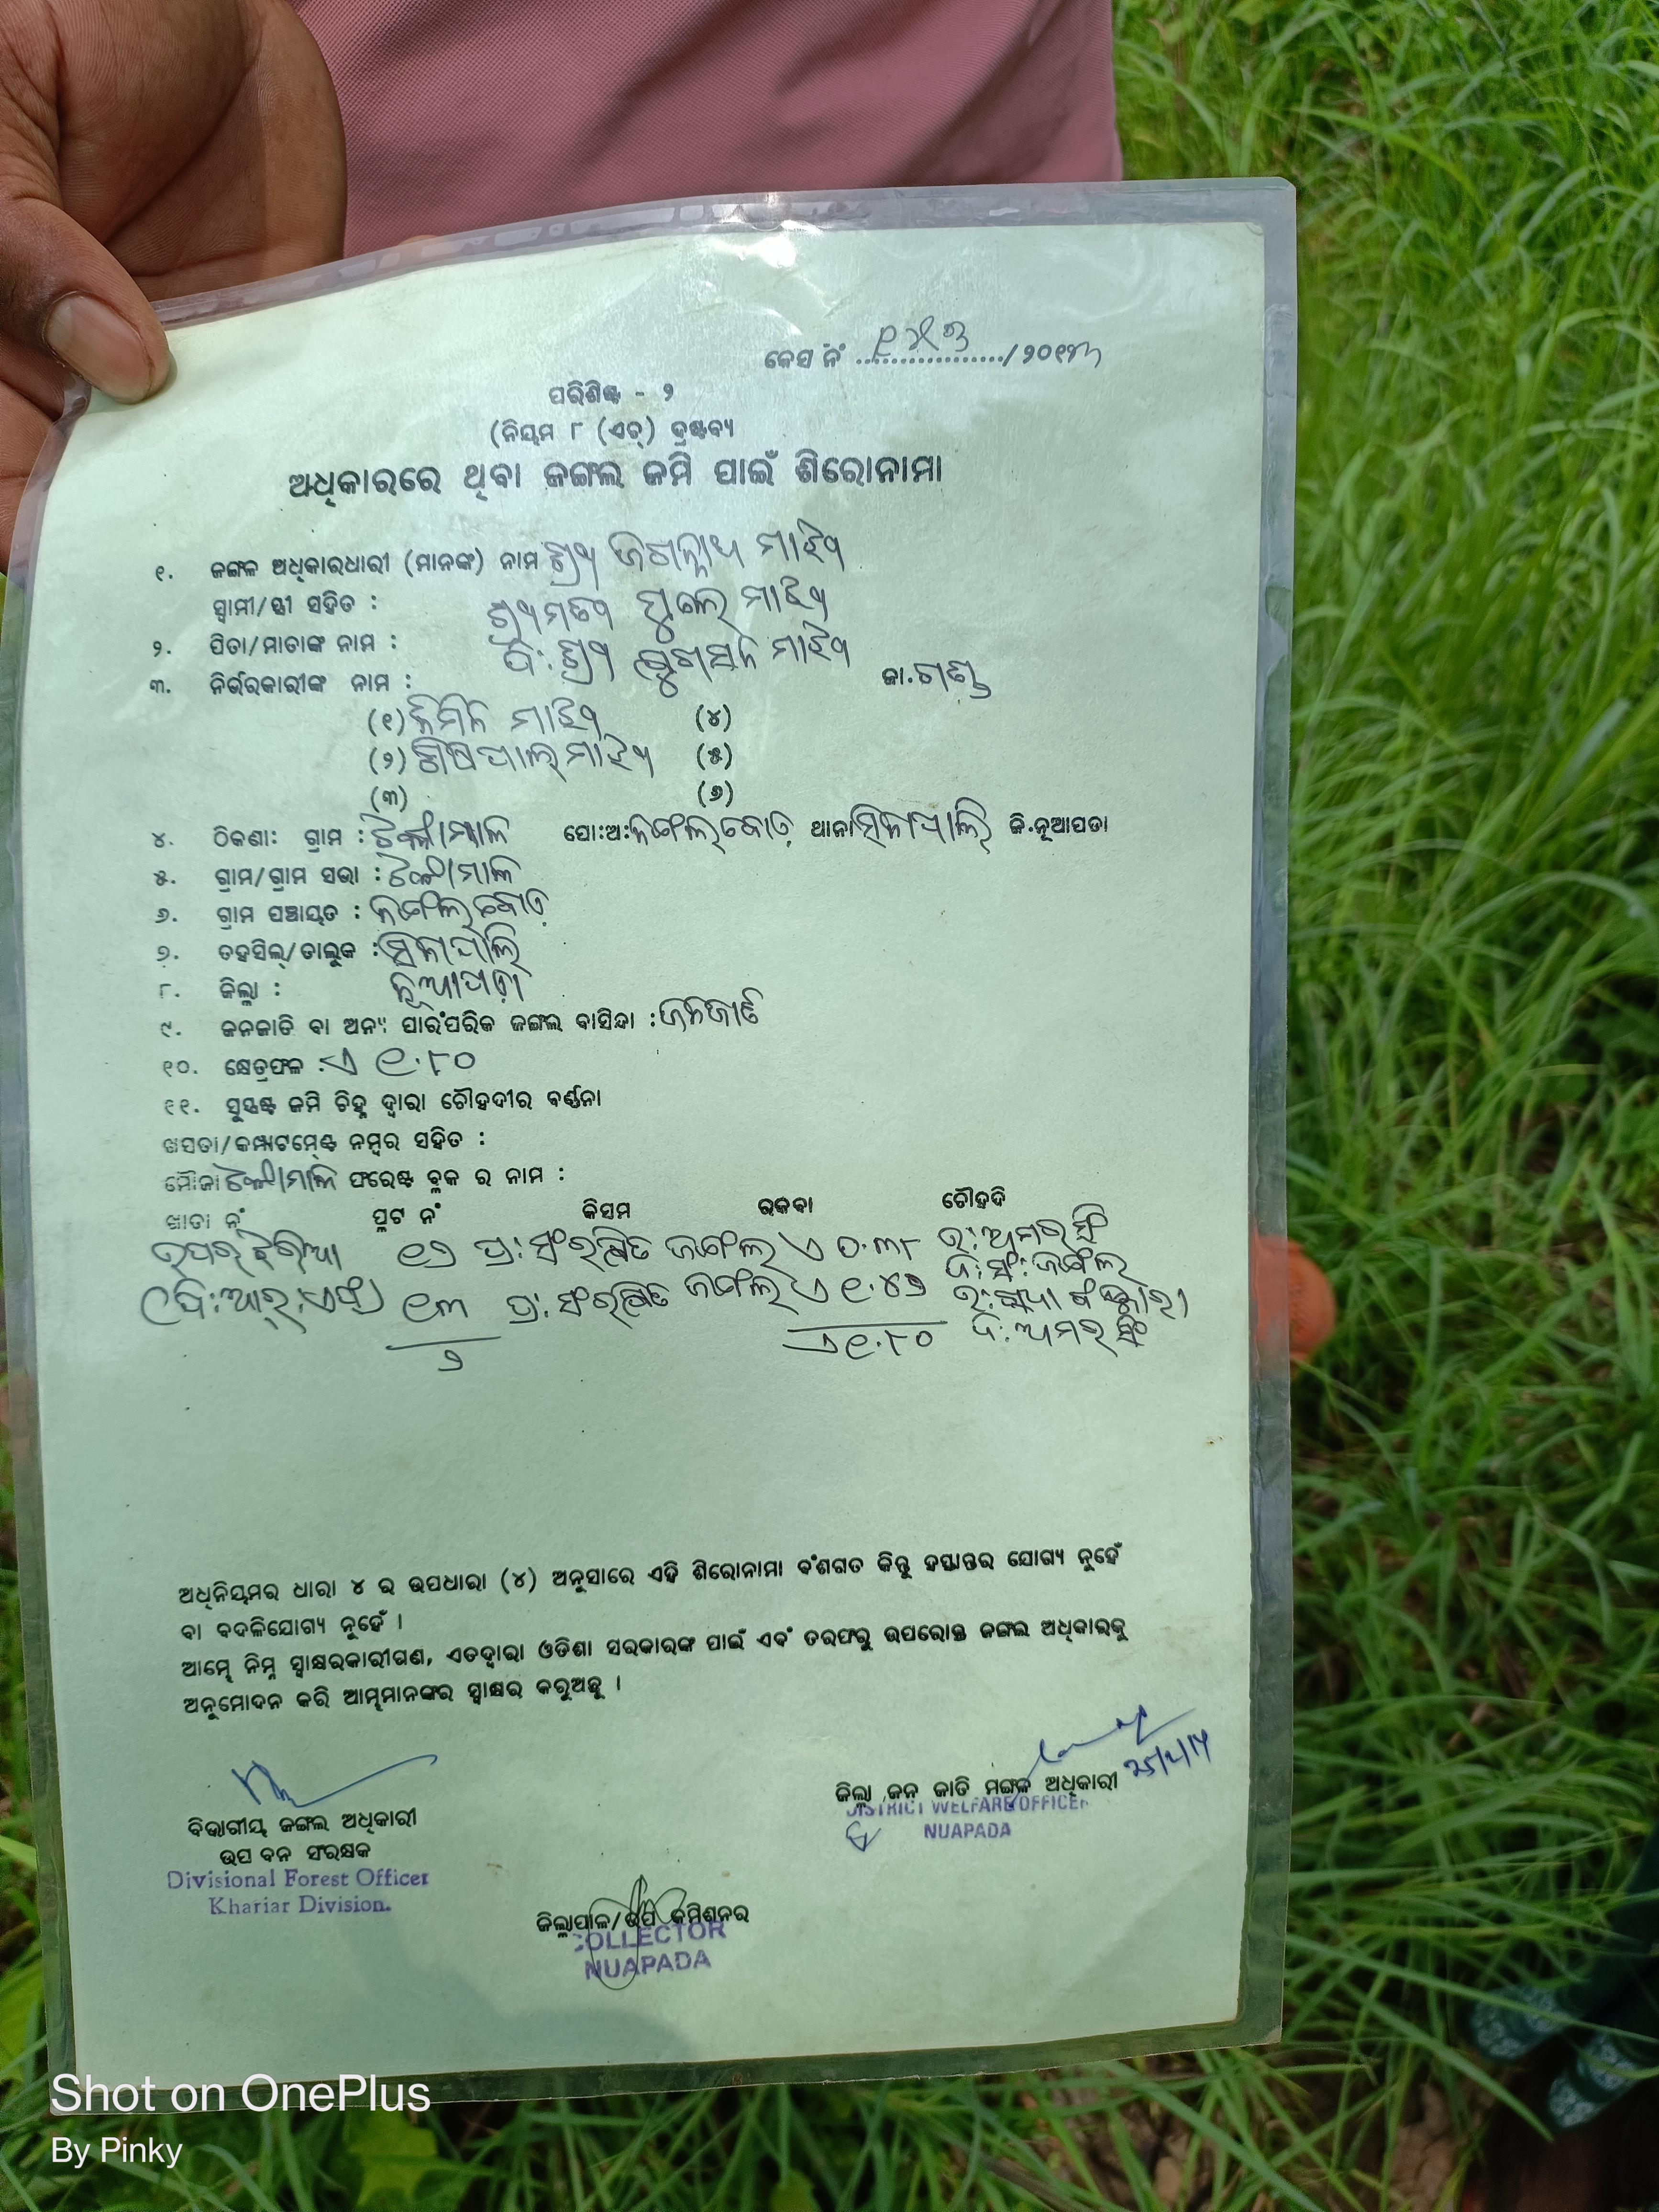 କେସ ନଂ ................/ ୨୦୧୩
ପରିଶିଷ୍ଟ - ୨
(ନିୟମ ୮ (ଏଚ୍) ଦ୍ରଷ୍ଟବ୍ୟ
ଅଧିକାରରେ ଥିବା ଜଙ୍ଗଲ ଜମି ପାଇଁ ଶିରୋନାମା
୧. ଜଙ୍ଗଲ ଅଧିକାରଧାରୀ (ମାନଙ୍କ) ନାମ ଶ୍ରୀ ଜଗନ୍ନାଥ ମାଝୀ
ସ୍ୱାମୀ/ସ୍ତ୍ରୀ ସହିତ : ଶ୍ରୀମତୀ ଫୁଲେ ମାଝୀ
୨. ପିତା/ମାତାଙ୍କ ନାମ : ପି: ଶ୍ରୀ ମାଝୀ
୩. ନିର୍ଭରକାରୀଙ୍କ ନାମ : ଜା. ଗଣ୍ଡ
(୧) ମାଝୀ (୪)
(୨) ମାଝୀ (୫)
(୩) (୬)
୪. ଠିକଣା: ଗ୍ରାମ : ପୋ:ଅ: ଥାନା ସିନାପାଲି ଜି.ନୂଆପଡା
୫. ଗ୍ରାମ/ଗ୍ରାମ ସଭା :
୬. ଗ୍ରାମ ପଞ୍ଚାୟତ :
୭. ତହସିଲ୍/ତାଲୁକ : ସିନାପାଲି
୮. ଜିଲ୍ଲା : ନୂଆପଡ଼ା
୯. ଜନଜାତି ବା ଅନ୍ୟ ପାରଂପରିକ ଜଙ୍ଗଲ ବାସିନ୍ଦା : ଜନଜାତି
୧୦. କ୍ଷେତ୍ରଫଳ : ଏ ୧.୮୦
୧୧. ସୁସ୍ପଷ୍ଟ ଜମି ଚିହ୍ନ ଦ୍ୱାରା ଚୌହଦୀର ବର୍ଣ୍ଣନା
ଖସଡା/କମ୍ପାଟମେଣ୍ଟ ନମ୍ବର ସହିତ :
ମୌଜା ଫରେଷ୍ଟ ବ୍ଲକ ର ନାମ :
ଖାତା ନଂ ପ୍ଲଟ ନଂ କିସମ ରକବା ଚୌହଦି
ଉପର୍ ଝରିଆ ୧୬ ପ୍ର: ସଂରକ୍ଷିତ ଜଙ୍ଗଲ୍ ଏ ୦.୩୮ ଉ: ଅମର ସିଂ
ଦ: ସଂ: ଜଙ୍ଗଲ୍
(ପି:ଆର୍.ଏଫ୍) ୧୩ ପ୍ର: ସଂରକ୍ଷିତ ଜଙ୍ଗଲ୍ ଏ ୧.୪୨ ଉ:
ଦ: ଅମର ସିଂ
୨ ଏ ୧.୮୦
ଅଧିନିୟମର ଧାରା ୪ ର ଉପଧାରା (୪) ଅନୁସାରେ ଏହି ଶିରୋନାମା ବଂଶଗତ କିନ୍ତୁ ହସ୍ତାନ୍ତର ଯୋଗ୍ୟ ନୁହେଁ
ବା ବଦଳିଯୋଗ୍ୟ ନୁହେଁ ।
ଆମ୍ଭେ ନିମ୍ନ ସ୍ୱାକ୍ଷରକାରୀଗଣ, ଏତଦ୍ୱାରା ଓଡିଶା ସରକାରଙ୍କ ପାଇଁ ଏବଂ ତରଫରୁ ଉପରୋକ୍ତ ଜଙ୍ଗଲ ଅଧିକାରକୁ
ଅନୁମୋଦନ କରି ଆମ୍ଭମାନଙ୍କର ସ୍ୱାକ୍ଷର କରୁଅଛୁ ।
ଜିଲ୍ଲା ଜନ ଜାତି ମଙ୍ଗଳ ଅଧିକାରୀ
DISTRICT WELFARE OFFICER
NUAPADA
ବିଭାଗୀୟ ଜଙ୍ଗଲ ଅଧିକାରୀ
ଉପ ବନ ସଂରକ୍ଷକ
Divisional Forest Officer
Khariar Division.
ଜିଲ୍ଲାପାଳ/ଉପ କମିଶନର
COLLECTOR
NUAPADA
Shot on OnePlus
By Pinky